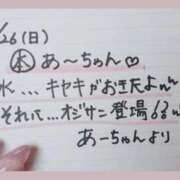 /26(日)
本 あ〜ちゃん♡
水...キヤキがおきたよ
それに...オジサン登場
あーちゃんより